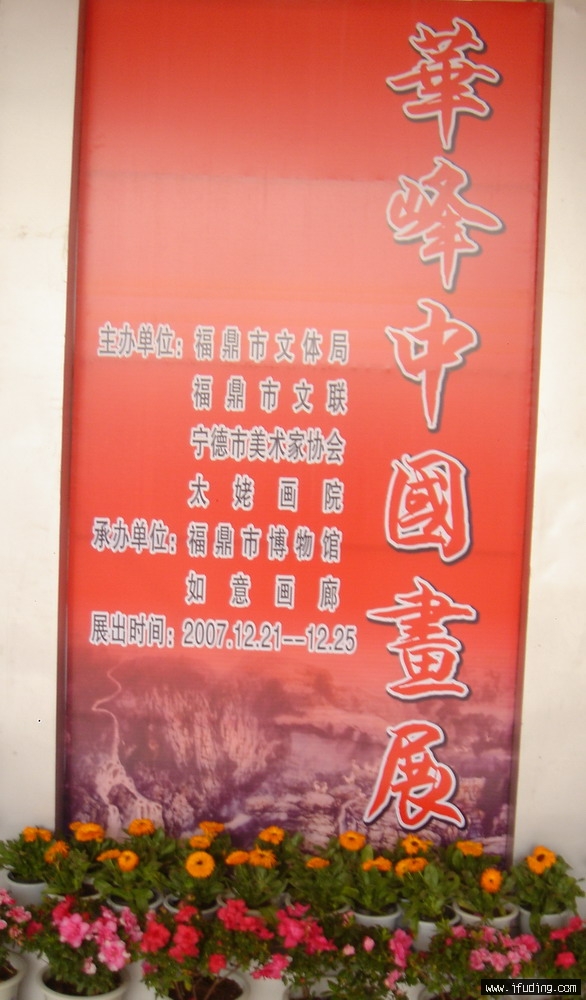 華峰中國畫展
主办单位：福鼎市文体局
福鼎市文联
宁德市美术家协会
太姥画院
承办单位：福鼎市博物馆
如意画廊
展出时间：2007.12.21--12.25
www.ifuding.com